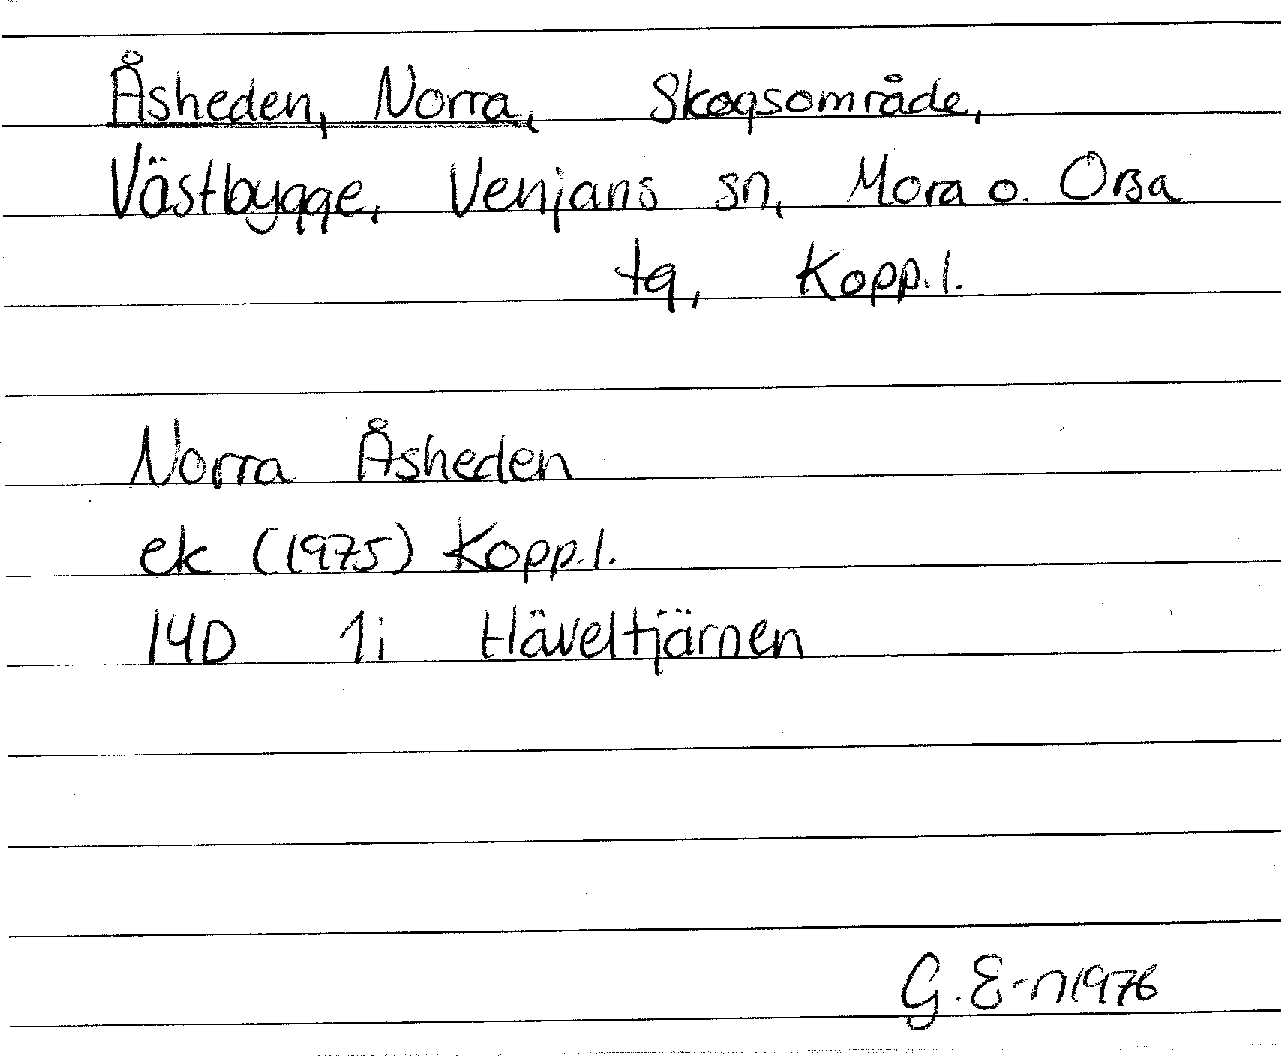 Åsheden, Norra, Skogsområde,
Västbygge, Venjans sn, Mora o. Orsa
tg, Kopp.l.
Norra Åsheden
ek (1975) Kopp.l.
14D 1i Häveltjärnen
G. E-n 1976